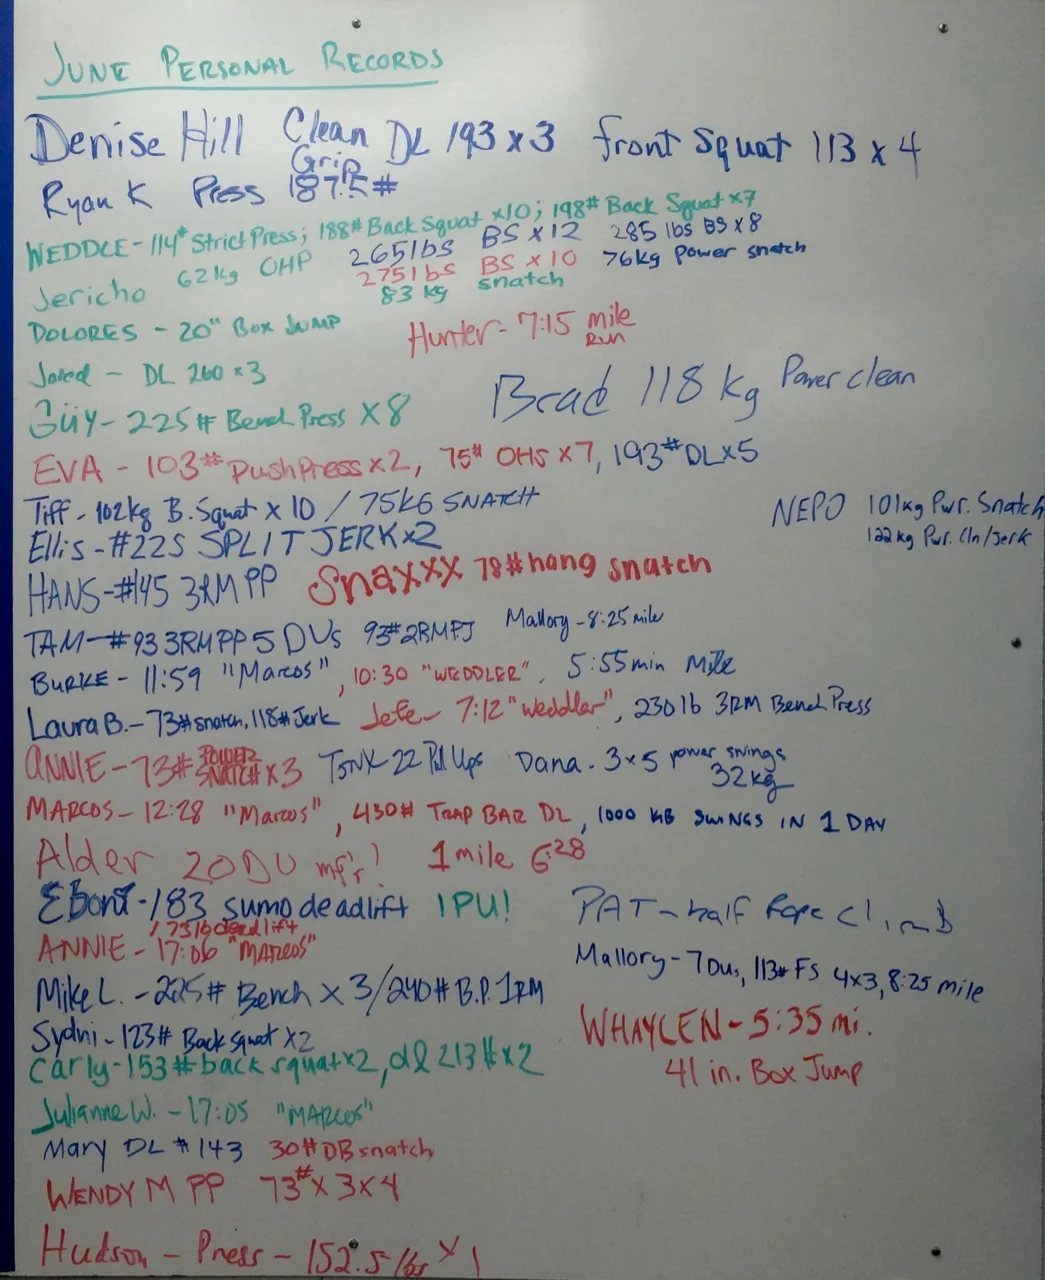 JUNE PERSONAL RECORDS
Denise Hill Clean Grip DL 193 x 3 front Squat 113 x 4
Ryan K Press 187.5#
WEDDLE - 114# Strict Press; 188# Back Squat x10; 198# Back Squat x7
Jericho 62kg OHP 265lbs BS x 12 285 lbs BS x 8
275lbs BS x 10 76kg Power snatch
83 kg snatch
DOLORES - 20" BOX JUMP
Hunter - 7:15 mile Run
Jared - DL 260 x 3
Brad 118 kg Power clean
Güy - 225# Bench Press x 8
EVA - 103# Push Press x 2, 75# OHS x 7, 193# DL x 5
Tiff - 102kg B. Squat x 10 / 75KG SNATCH
NEPO 101kg Pwr. Snatch
122 kg Pwr. Cln/Jerk
Ellis - #225 SPLIT JERK x 2
HANS - #145 3RM PP
Snaxxx 78# hang snatch
TAM - #93 3RM PP 5 DUs 93# 2RM PJ
Mallory - 8:25 mile
BURKE - 11:59 "Marcos", 10:30 "WEDDLER", 5:55 min Mile
Laura B. - 73# snatch, 118# Jerk
Jefe - 7:12 "Weddler", 230 lb 3RM Bench Press
ANNIE - 73# POWER SNATCH x 3
TONY 22 Pull Ups
Dana - 3 x 5 power swings 32kg
MARCOS - 12:28 "Marcos", 430# TRAP BAR DL, 1000 KB SWINGS IN 1 DAY
Alder 20 DU mf'r! 1 mile 6:28
Eboni - 183 sumo deadlift 1PU!
173lb deadlift
PAT - half Rope Climb
ANNIE - 17:06 "MARCOS"
Mallory - 7 Dus, 113# FS 4x3, 8:25 mile
Mike L. - 225# Bench x 3 / 240# B.P. 1RM
WHAYLEN - 5:35 mi.
41 in. Box Jump
Sydni - 123# Back Squat x2
Carly - 153# back squat x 2, dl 213# x 2
Julianne W. - 17:05 "MARCOS"
Mary DL #143 30# DB snatch
WENDY M PP 73# x 3 x 4
Hudson - Press - 152.5 lbs x 1